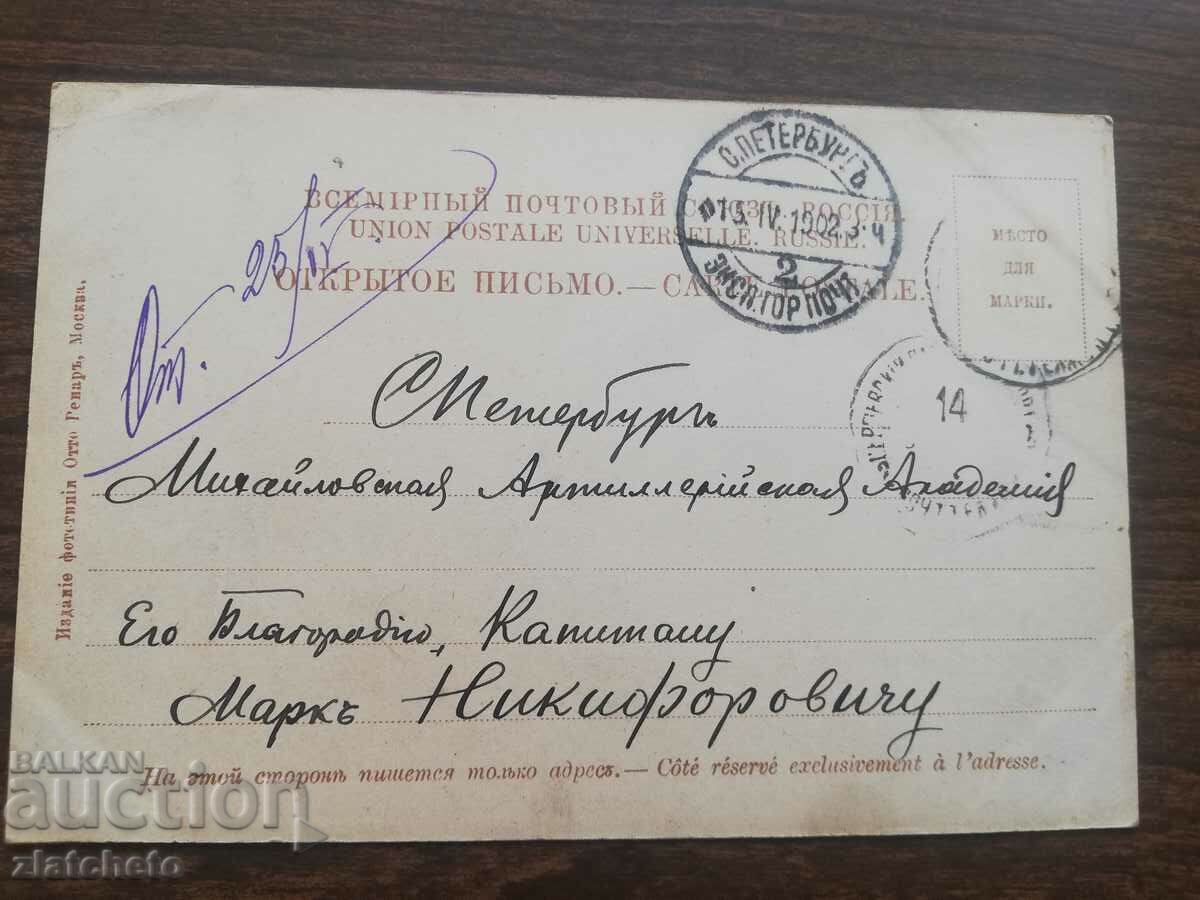 С.ПЕТЕРБУРГЪ
15.IV.1902.3.Ч
2
ЭКСП.ГОР.ПОЧТ
ВСЕМІРНЫЙ ПОЧТОВЫЙ СОЮЗЪ. РОССІЯ.
UNION POSTALE UNIVERSELLE. RUSSIE.
ОТКРЫТОЕ ПИСЬМО.—CARTE POSTALE.
МѢСТО
ДЛЯ
МАРКИ.
От. 25/IV.
14
СПетербургъ
Михайловская Артиллерійская Академія
Его Благородію, Капитану
Маркъ Никифоровичу
На этой сторонѣ пишется только адресъ.— Côté réservé exclusivement à l'adresse.
Изданіе фототипіи Отто Ренаръ, Москва.
BALKAN
auction
zlatcheto